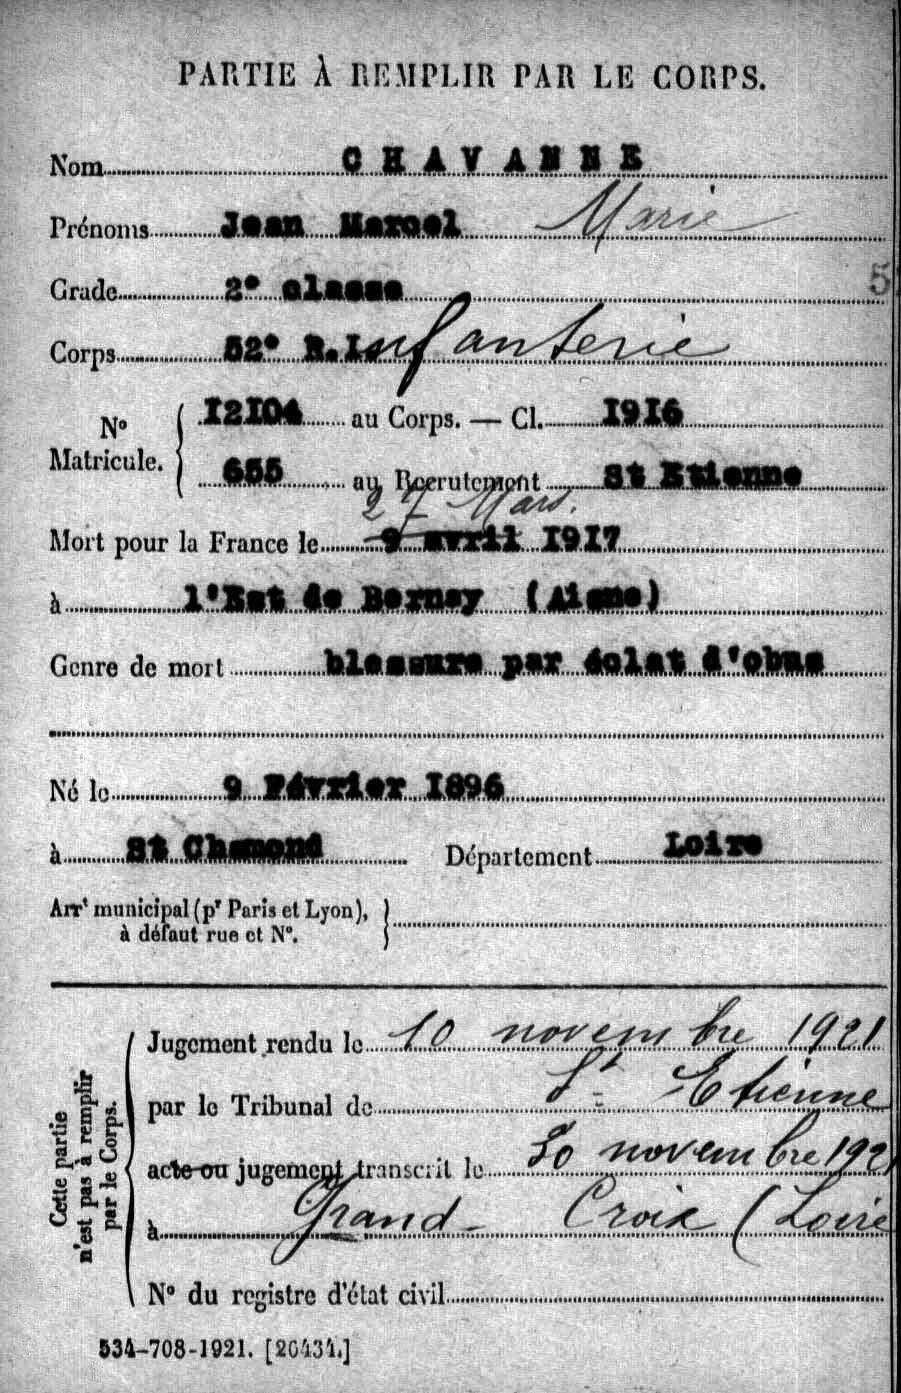 PARTIE À REMPLIR PAR LE CORPS.
Nom CHAVANNE
Prénoms Jean Marcel Marie
Grade 2e classe
5
Corps 52e R.I. nfanterie
No Matricule. 12104 au Corps. — Cl. 1916
655 au Recrutement St Etienne
27 Mars.
Mort pour la France le 9 avril 1917
à l'Est de Bernay (Aisne)
Genre de mort blessure par éclat d'obus
Né le 9 Février 1896
à St Chamond Département Loire
Arrt municipal (pr Paris et Lyon),
à défaut rue et No.
Cette partie n'est pas à remplir par le Corps.
Jugement rendu le 10 novembre 1921
par le Tribunal de St Etienne
acte ou jugement transcrit le 30 novembre 192
à Grand-Croix (Loire
No du registre d'état civil
534-708-1921. [26434.]